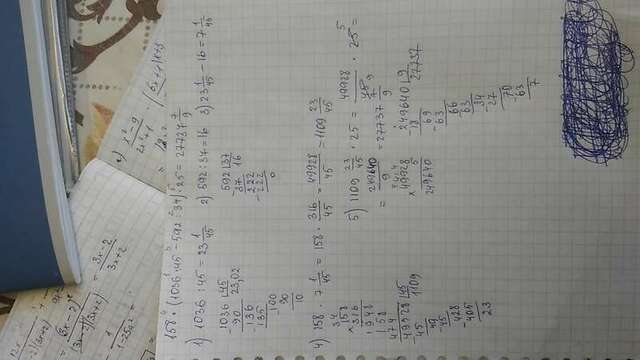 (3x-2)²
(3x-2)(3x+2) = 3x-2
3x+2
1-25a² =
x²-9
158 · (1036 : 45 - 592 : 34) · 25 = 27737 7/9
1) 1036 : 45 = 23 1/45 2) 592 : 37 = 16 3) 23 1/45 - 16 = 7 1/45
1036 | 45
90 | 23,02
136
135
100
90
10
592 | 37
37 | 16
222
222
0
4) 158 · 7 1/45 = 158 · 316/45 = 49928/45 = 1109 23/45
158
× 316
948
158
474
49928 | 45
45 | 1109
49
45
428
405
23
5) 1109 23/45 · 25 = 49928/45 9 · 25 5 =
= 249640/9 = 27737 7/9
49928
× 5
249640
249640 | 9
18 | 27737
69
63
66
63
34
27
70
63
7